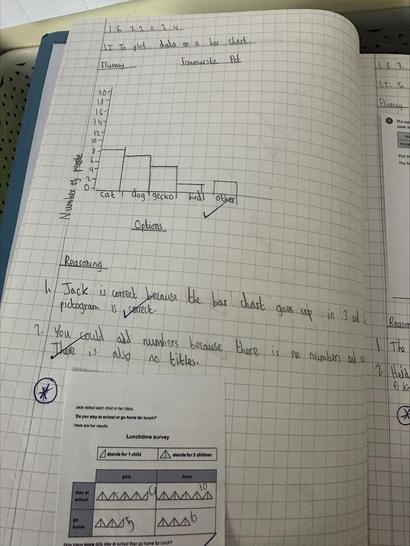 L.I. To plot data on a bar chart.
Fluency Favourite Pet
20
18
16
14
12
10
8
6
4
2
0
Number of people
cat dog gecko bird other
Options
Reasoning
1. Jack is correct because the bar chart goes up in 3 and
pictogram is correct.
2. You could add numbers because there is no numbers
There is also no titles.
Jada asked each child in her class,
'Do you stay at school or go home for lunch?'
Here are her results.
Lunchtime survey
stands for 1 child stands for 2 children
girls boys
stay at school 10
go home 5 6
How many more girls stay at school than go home for lunch?
18.3.
L.I. To
Fluency
Reason
1 The
2 Held
6 K